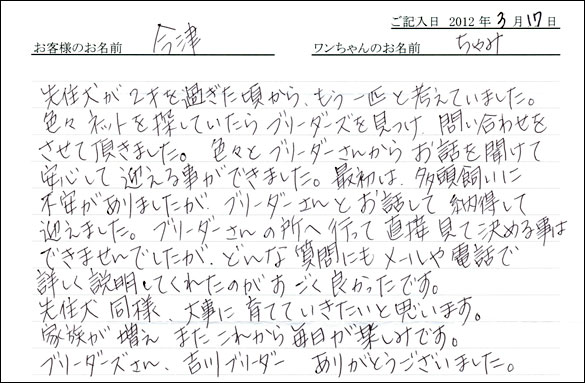 ご記入日 2012年3月17日
お客様のお名前 今津 ワンちゃんのお名前 ちゃみ
先住犬が2才を過ぎた頃から、もう一匹と考えていました。
色々ネットを探していたらブリーダーズを見つけ、問い合わせを
させて頂きました。色々とブリーダーさんからお話を聞けて
安心して迎える事ができました。最初は、多頭飼いに
不安がありましたが、ブリーダーさんとお話して納得して
迎えました。ブリーダーさんの所へ行って直接見て決める事は
できませんでしたが、どんな質問にもメールや電話で
詳しく説明してくれたのがすごく良かったです。
先住犬同様、大事に育てていきたいと思います。
家族が増え またこれから毎日が楽しみです。
ブリーダーズさん、吉川ブリーダー ありがとうございました。